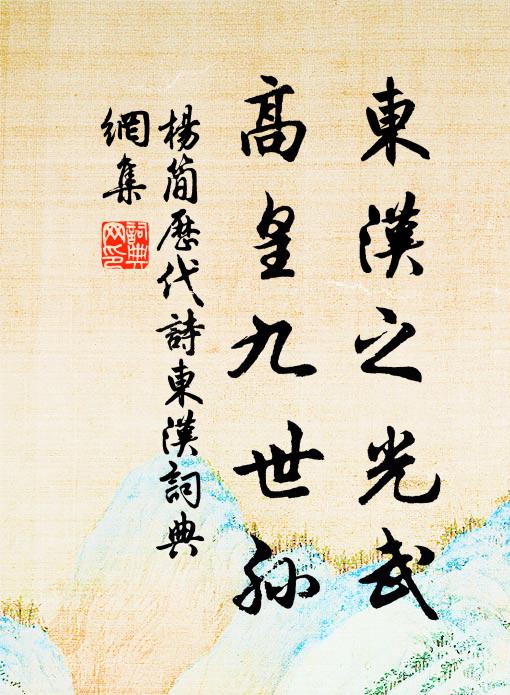 東漢之光武
高皇九世孫
楊簡歷代詩東漢詞典
網集
詞典
网印